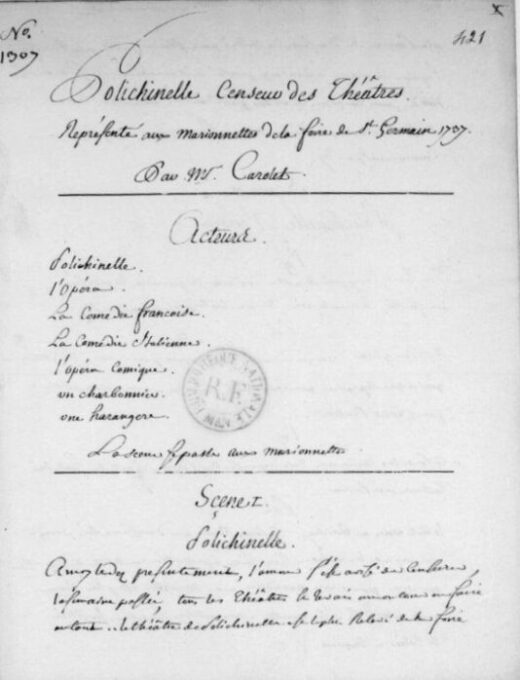 No.
1307
421
Polichinelle Censeur des Théâtres.
Représenté aux marionnettes de la foire de St. Germain 1737.
Par Mr. Carolet.
Acteurs.
Polichinelle.
l'Opéra.
La Comédie françoise.
La Comédie Italienne.
l'opéra Comique.
un charbonnier.
une harangere.
R.F.
La scene se passe aux marionnettes
Scene I.
Polichinelle.
présentement,
la semaine passée, tous les Théâtres
le théâtre de Polichinelle est le plus de la foire